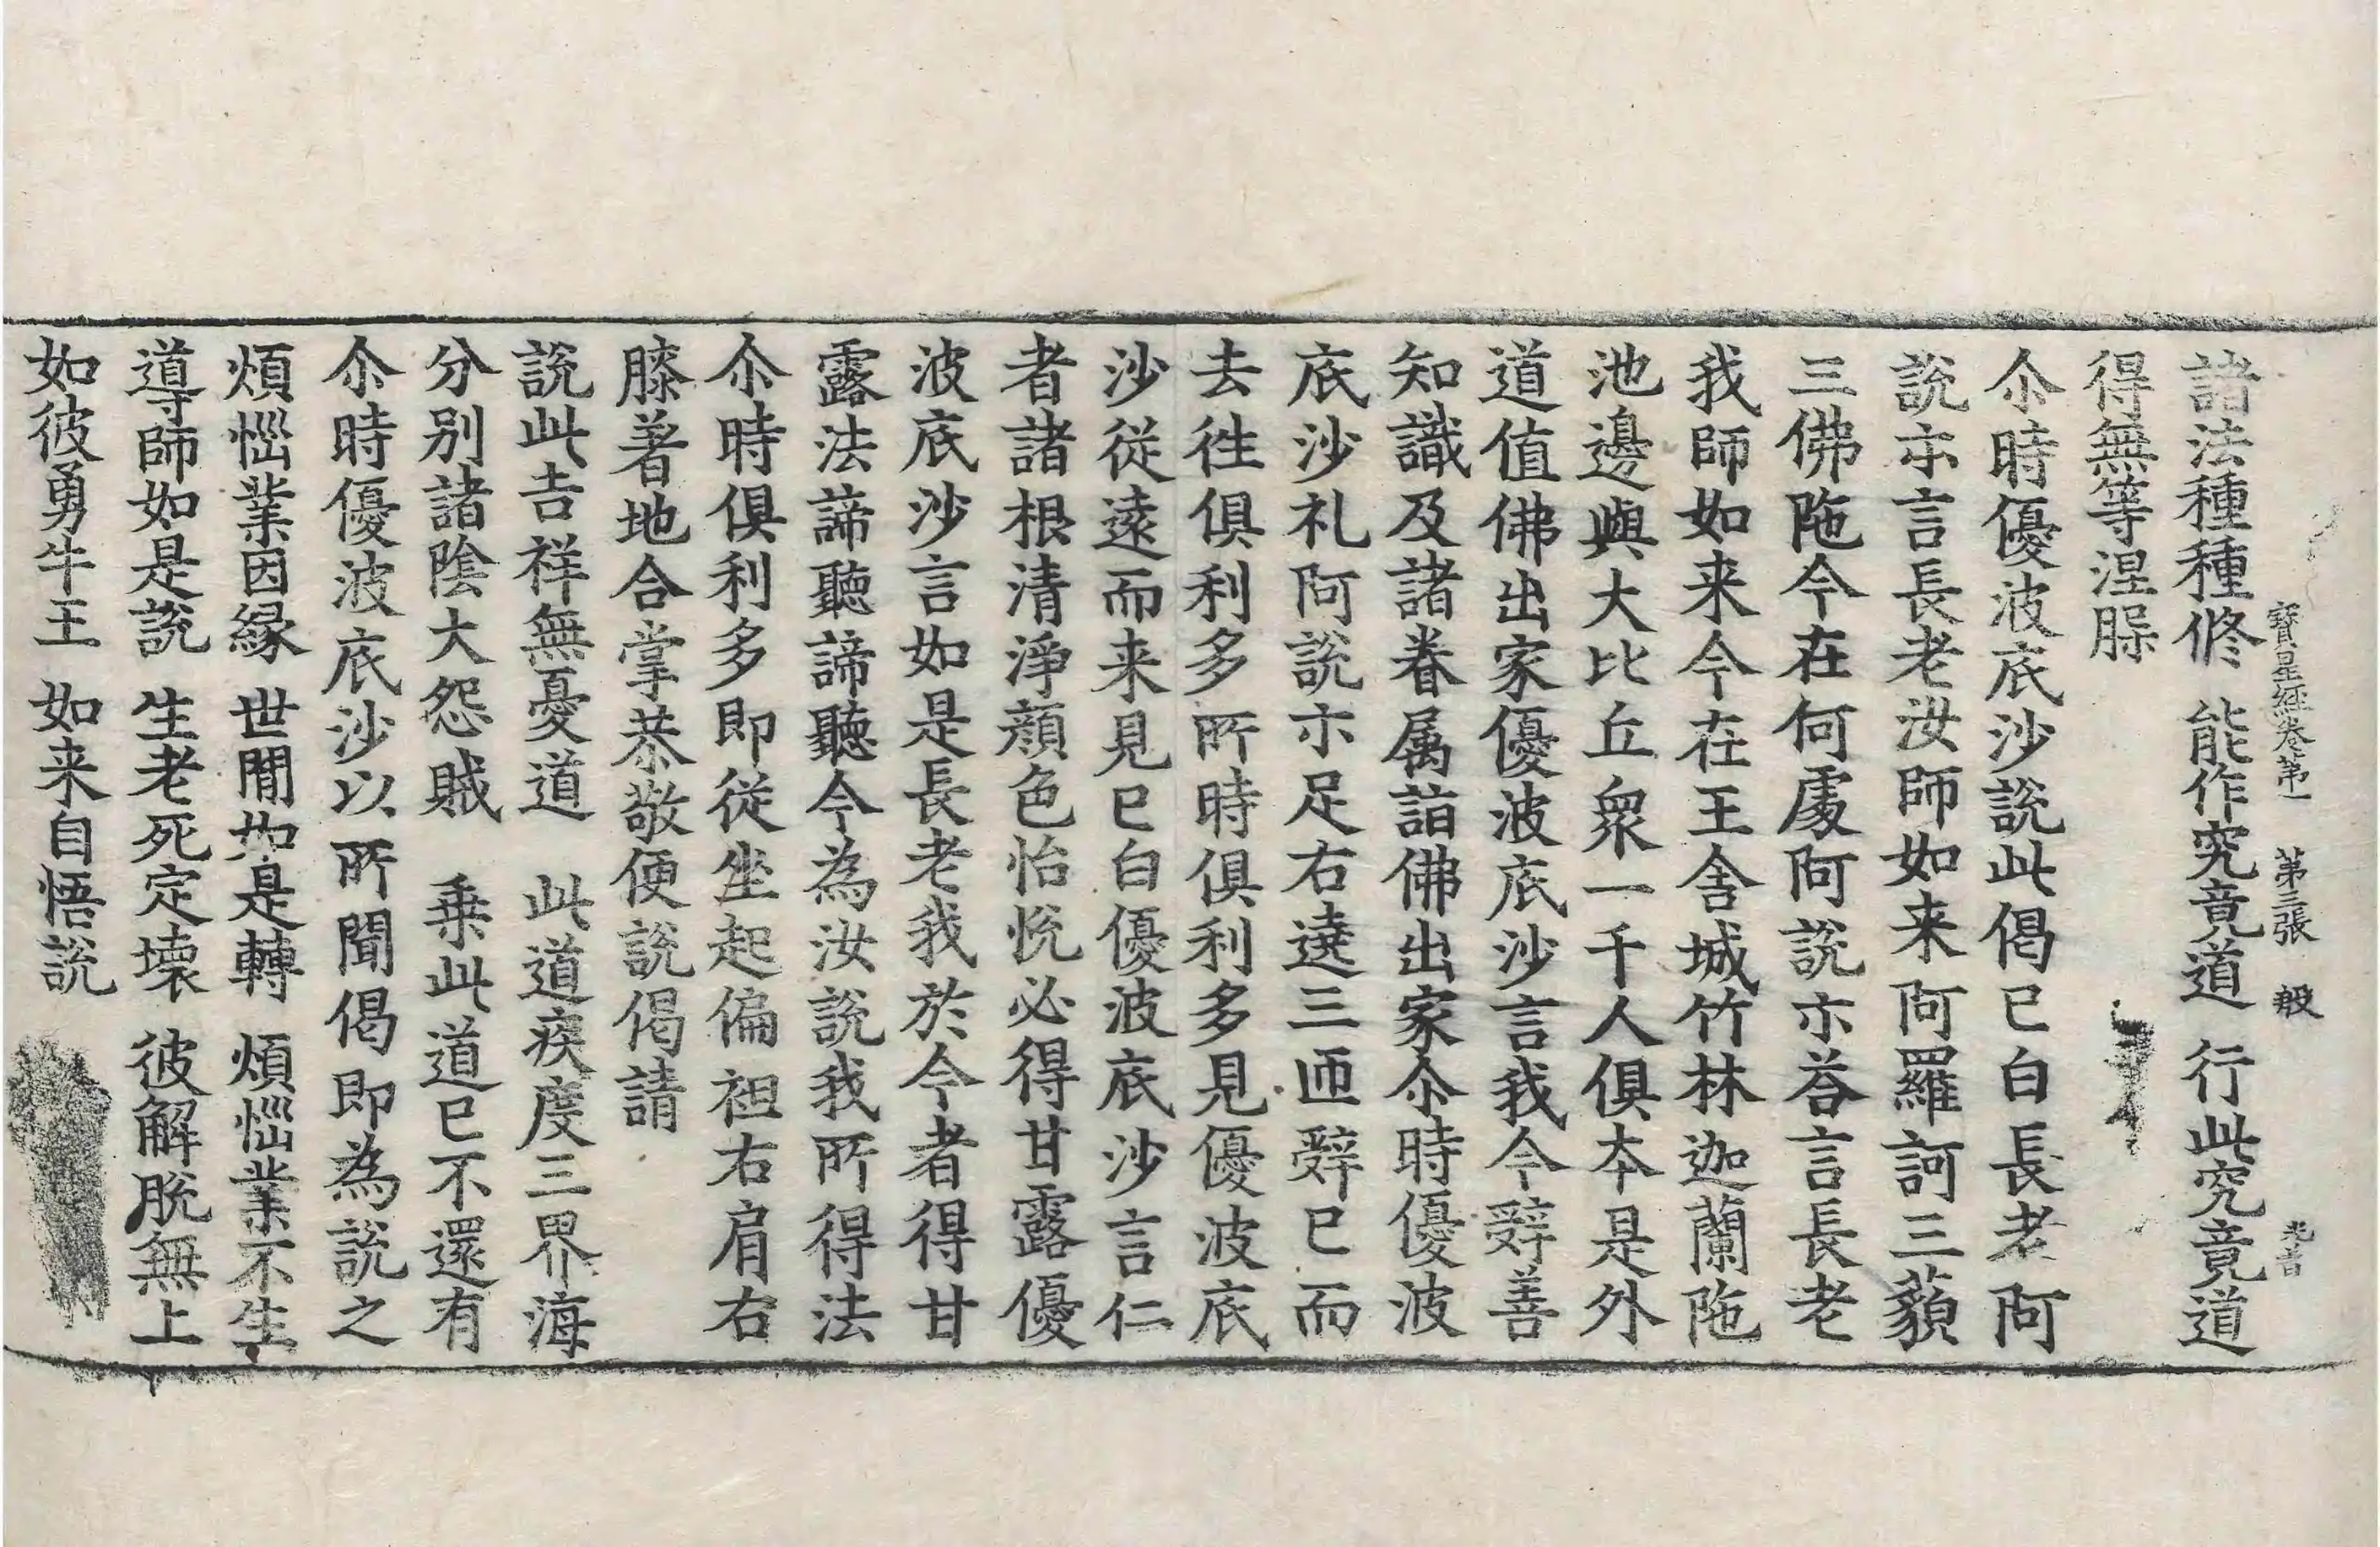 諸法種種修　能作究竟道　行此究竟道
寶星經卷第一　第三張　般
得無等涅䐉
尒時優波底沙說此偈已白長老阿
說示言長老汝師如来阿羅訶三藐
三佛陁今在何處阿說示荅言長老
我師如来今在王舍城竹林迦蘭陁
池邊與大比丘衆一千人俱本是外
道值佛出家優波底沙言我今辤善
知識及諸眷属詣佛出家尒時優波
底沙礼阿說示足右遶三匝辤已而
去徃俱利多所時俱利多見優波底
沙從遠而来見已白優波底沙言仁
者諸根清淨顔色怡悅必得甘露優
波底沙言如是長老我於今者得甘
露法諦聽諦聽今為汝說我所得法
尒時俱利多即從坐起偏袒右肩右
膝著地合掌恭敬便說偈請
說此吉祥無憂道　此道疾度三界海
分別諸陰大怨賊　乗此道已不還有
尒時優波底沙以所聞偈即為說之
煩惱業因縁　世間如是轉　煩惱業不生
導師如是說　生老死定壞　彼解脫無上
如彼勇牛王　如来自悟說